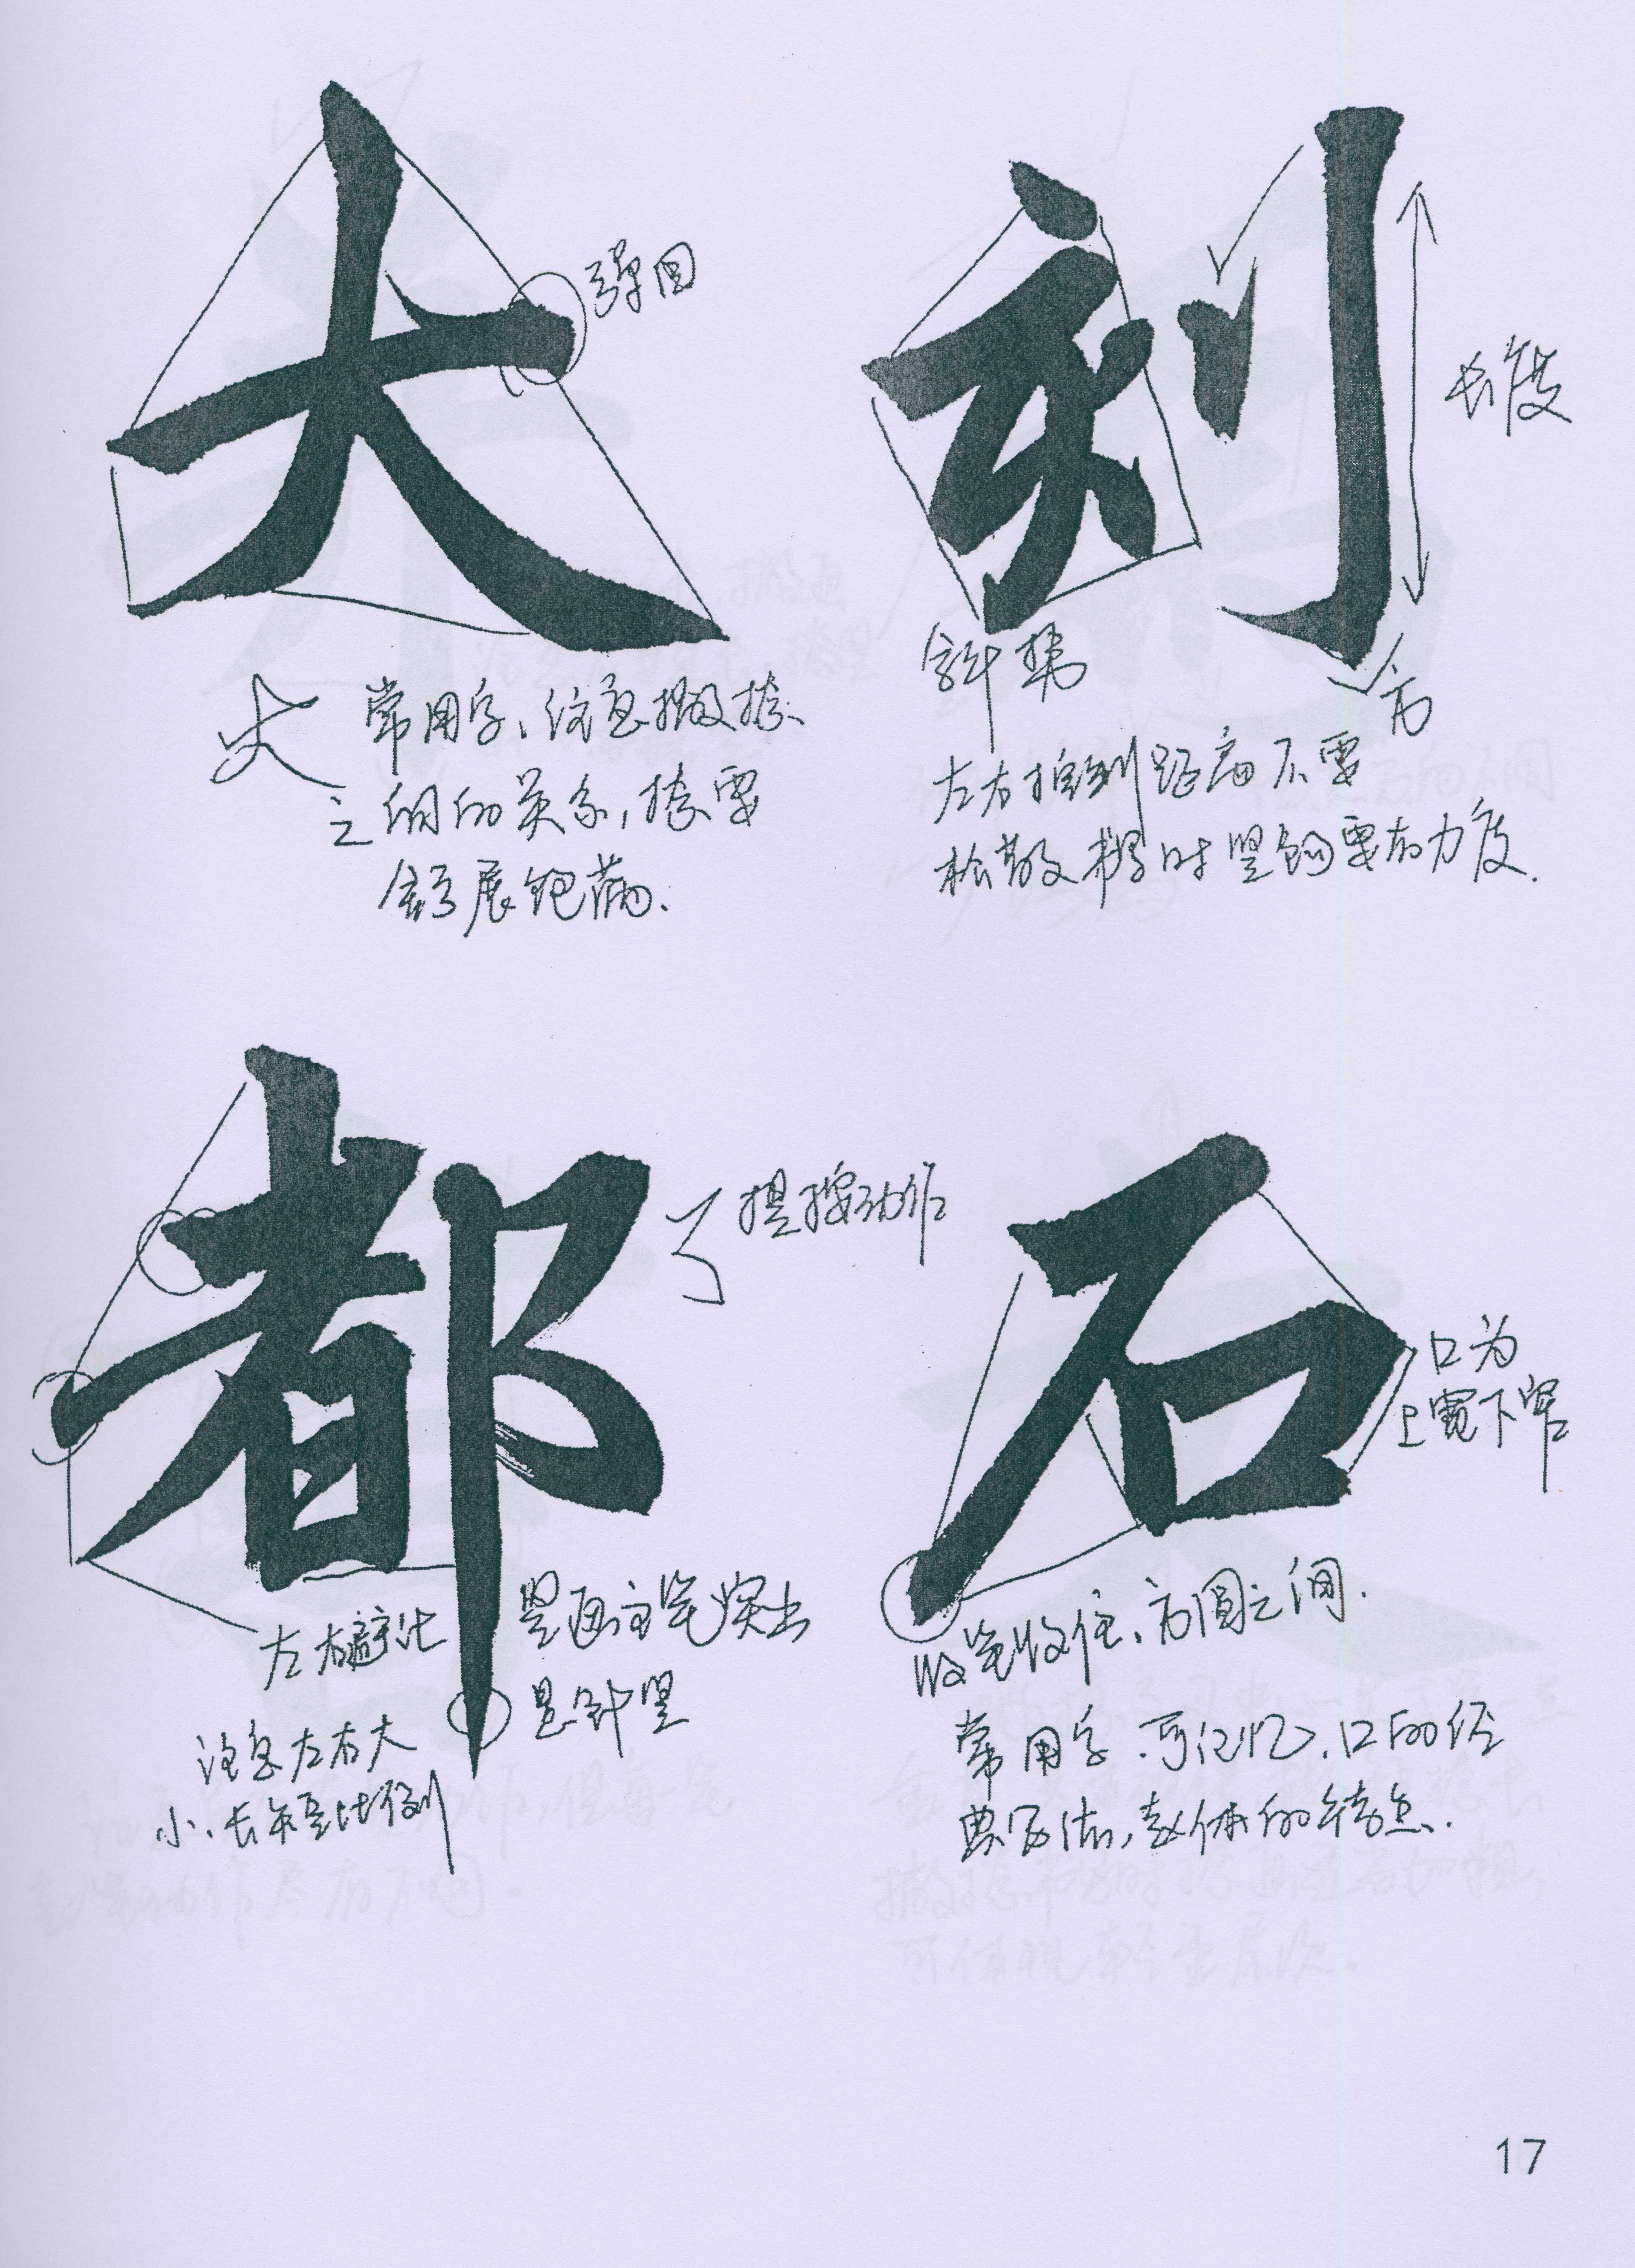 大
弹回
大 常用字、注意撇捺
之间的关系,捺要
舒展饱满.
刻
长度
斜势
方
左右 距离不要
松散 时竖钩要有力度.
都
提按动作
左右避让
竖画主笔突出
悬针竖
注意左右大
小、长短比例
石
口为
上宽下窄
收笔收住、方圆之间.
常用字.可记忆,口的经
典写法,赵体的特点.
17